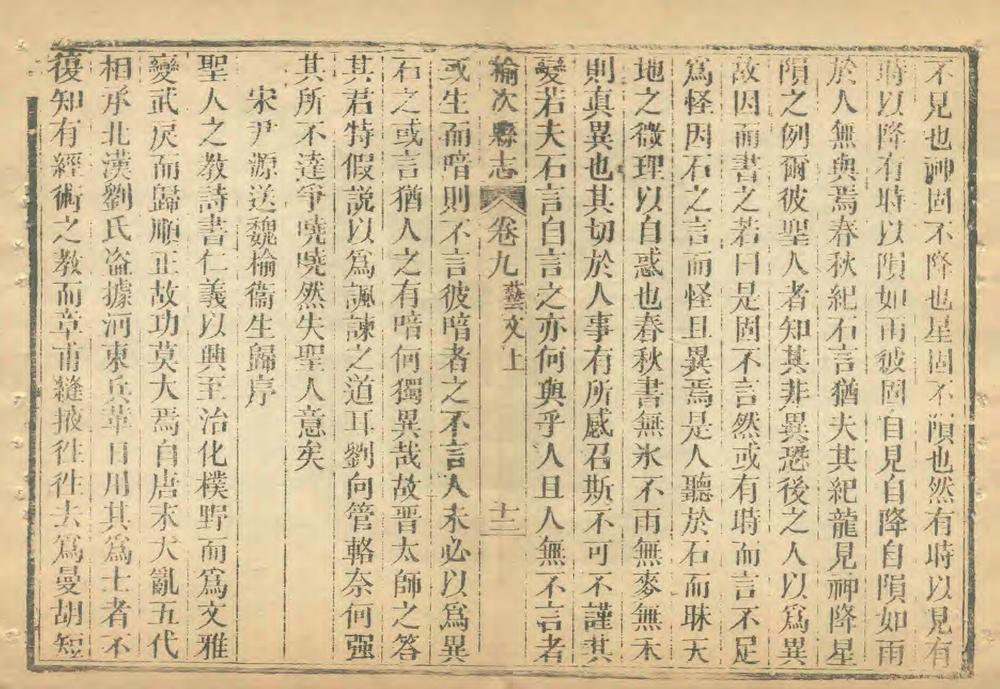 不見也神固不降也星固不隕也然有時以見有
時以降有時以隕如雨彼固自見自降自隕如雨
於人無與焉春秋紀石言猶夫其紀龍見神降星
隕之例爾彼聖人者知其非異恐後之人以爲異
故因而書之若曰是固不言然或有時而言不足
爲怪因石之言而怪且異焉是人聽於石而昧天
地之微理以自惑也春秋書無氷不雨無麥無禾
則真異也其切於人事有所感召斯不可不謹其
變若夫石言自言之亦何與乎人且人無不言者
榆次縣志 卷九 藝文上 十二
或生而喑則不言彼喑者之不言人未必以爲異
石之或言猶人之有喑何獨異哉故晋太師之答
其君特假說以爲諷諫之道耳劉向管輅奈何强
其所不逹爭曉曉然失聖人意矣
宋尹源送魏榆衞生歸序
聖人之教詩書仁義以興至治化樸野而爲文雅
變武戾而歸順正故功莫大焉自唐末大亂五代
相承北漢劉氏盗據河東兵革日用其爲士者不
復知有經術之教而章甫縫掖徃徃去爲曼胡短